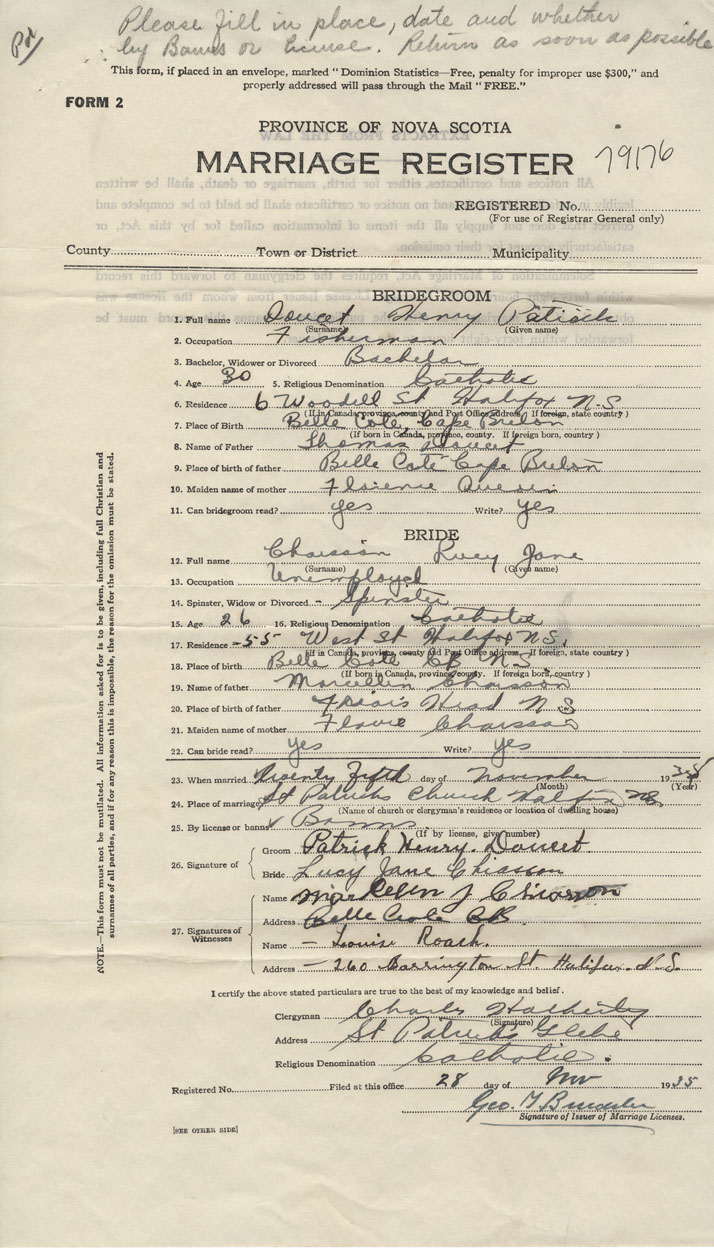 Please fill in place, date and whether
by Banns or License. Return as soon as possible
This form, if placed in an envelope, marked "Dominion Statistics—Free, penalty for improper use $300," and
properly addressed will pass through the Mail "FREE."
FORM 2
PROVINCE OF NOVA SCOTIA
MARRIAGE REGISTER 79176
REGISTERED No.
(For use of Registrar General only)
County Town or District Municipality
BRIDEGROOM
1. Full name Doucet Henry Patrick
(Surname) (Given name)
2. Occupation Fisherman
3. Bachelor, Widower or Divorced Bachelor
4. Age 30 5. Religious Denomination Catholic
6. Residence 6 Woodell St Halifax N.S
(If in Canada, province, county and Post Office address. If foreign, state country)
7. Place of Birth Belle Cote, Cape Breton
(If born in Canada, province, county. If foreign born, country)
8. Name of Father Thomas Doucet
9. Place of birth of father Belle Cote Cape Breton
10. Maiden name of mother Florence
11. Can bridegroom read? yes Write? yes
BRIDE
12. Full name Chaisson Lucy Jane
(Surname) (Given name)
13. Occupation Unemployed
14. Spinster, Widow or Divorced - Spinster
15. Age 26 16. Religious Denomination Catholic
17. Residence -55 West St Halifax N.S.
(If in Canada, province, county and Post Office address. If foreign, state country)
18. Place of birth Belle Cote CB N.S
(If born in Canada, province, county. If foreign born, country)
19. Name of father Marcellin Chaisson
20. Place of birth of father Friars Head N.S
21. Maiden name of mother Flavie Chaisson
22. Can bride read? yes Write? yes
23. When married Twenty Fifth day of November 1935
(Month) (Year)
24. Place of marriage St Patricks Church Halifax NS
(Name of church or clergyman's residence or location of dwelling house)
25. By license or banns Banns
(If by license, give number)
26. Signature of
Groom Patrick Henry. Doucet
Bride Lucy Jane Chiasson
27. Signatures of Witnesses
Name Marcellin J Chiasson
Address Belle Cote CB
Name - Louise Roach.
Address - 260 Barrington St. Halifax. N.S.
I certify the above stated particulars are true to the best of my knowledge and belief.
Clergyman Charles
(Signature)
Address St Patrick's Glebe
Religious Denomination Catholic.
Registered No. Filed at this office 28 day of Nov 1935
Geo.
Signature of Issuer of Marriage Licenses.
[SEE OTHER SIDE]
NOTE.—This form must not be mutilated. All information asked for is to be given, including full Christian and
surnames of all parties, and if for any reason this is impossible, the reason for the omission must be stated.